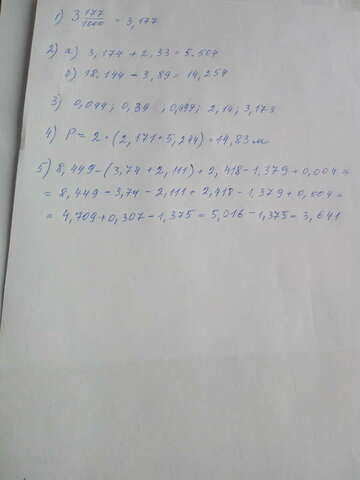 1) 3 177/1000 = 3,177
2) а) 3,174 + 2,33 = 5.504
б) 18,144 - 3,89 = 14,254
3) 0,044; 0,39 ; 0,494; 2,14; 3,173
4) P = 2 · (2,171 + 5,244) = 14,83 м
5) 8,449 - (3,74 + 2,111) + 2,418 - 1,379 + 0,004 =
= 8,449 - 3,74 - 2,111 + 2,418 - 1,379 + 0,004 =
= 4,709 + 0,307 - 1,375 = 5,016 - 1,375 = 3,641